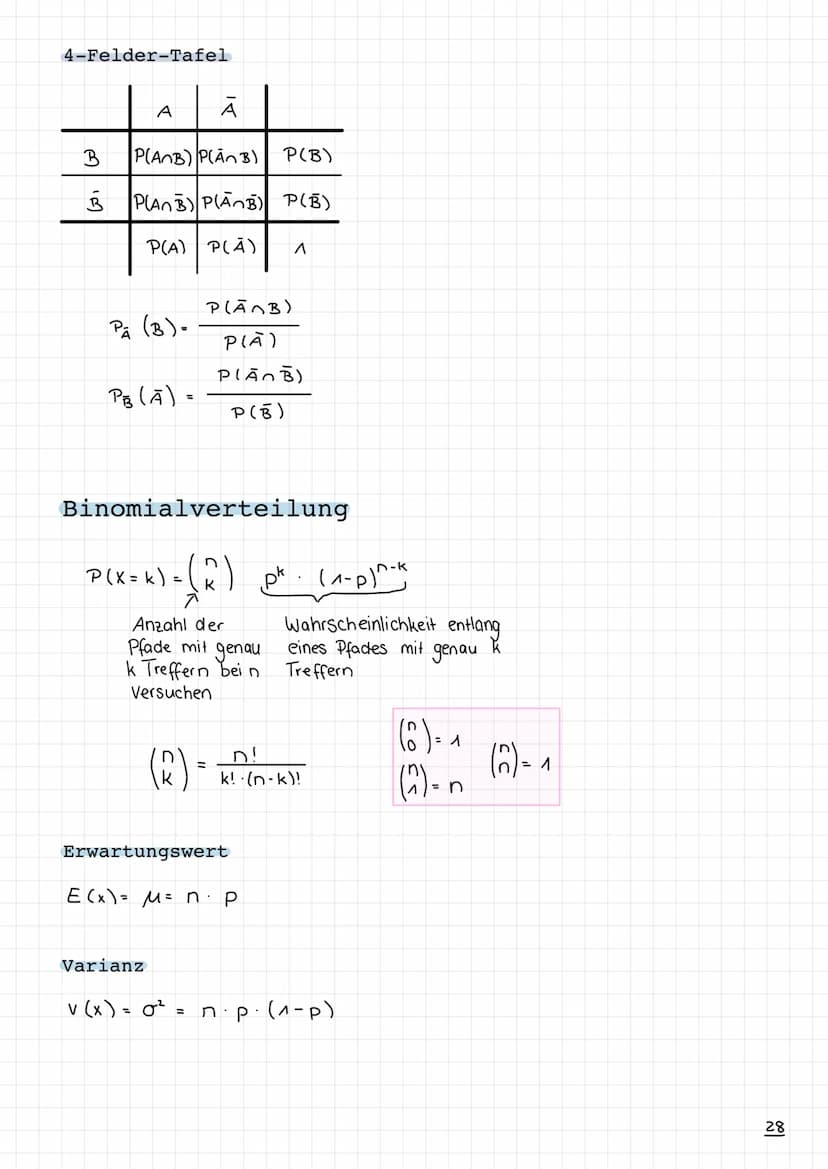 4-Felder-Tafel
A Ā
B P(A∩B) P(Ā∩B) P(B)
B̄ P(A∩B̄) P(Ā∩B̄) P(B̄)
P(A) P(Ā) 1
P_Ā (B) = P(Ā∩B) / P(Ā)
P_B̄ (Ā) = P(Ā∩B̄) / P(B̄)
Binomialverteilung
P(X=k) = (n k) p^k · (1-p)^n-k
Anzahl der Pfade mit genau k Treffern bei n Versuchen
Wahrscheinlichkeit entlang eines Pfades mit genau k Treffern
(n k) = n! / k!·(n-k)!
(n 0) = 1
(n 1) = n
(n n) = 1
Erwartungswert
E(x) = μ = n · p
Varianz
V(x) = σ² = n · p · (1-p)
28